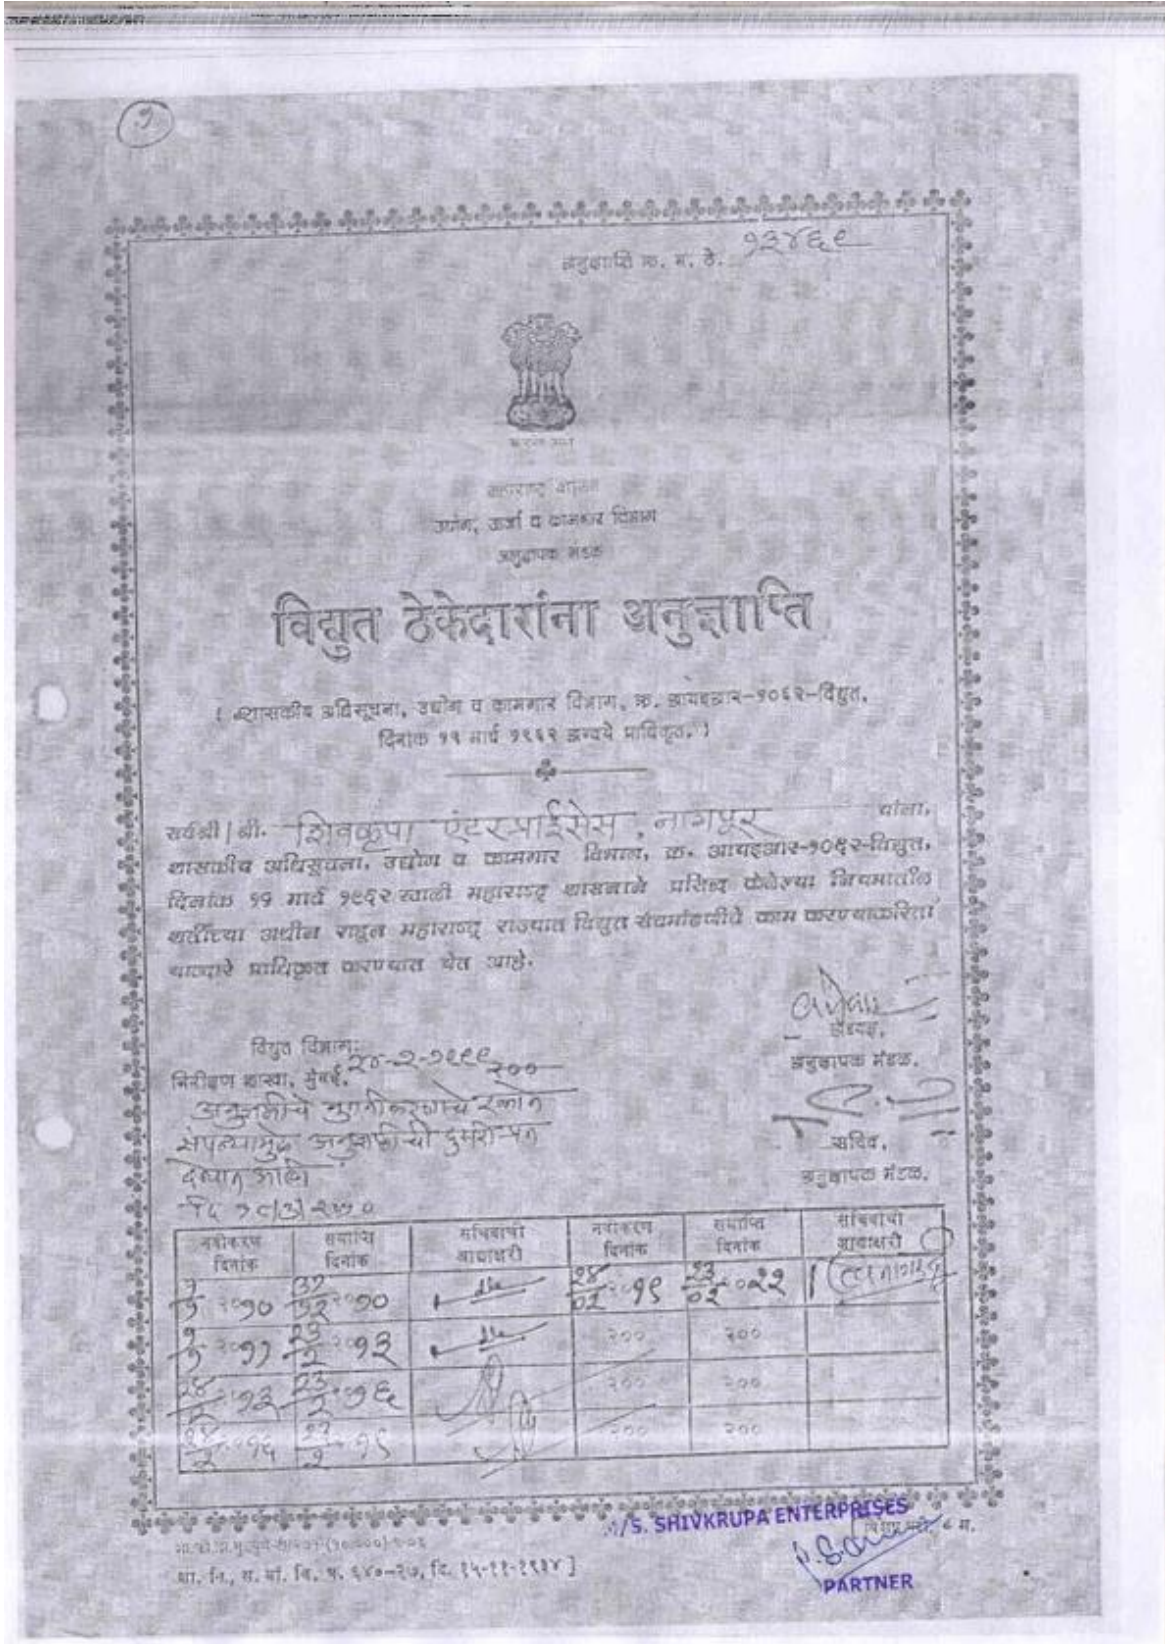 १
अनुज्ञाप्ति क्र. म. ठे. १३४६९
महाराष्ट्र शासन
उद्योग, ऊर्जा व कामगार विभाग
अनुज्ञापक मंडळ
विद्युत ठेकेदारांना अनुज्ञाप्ति
( शासकीय अधिसूचना, उद्योग व कामगार विभाग, क्र. आयइआर-१०६२-विद्युत,
दिनांक १९ मार्च १९६२ अन्वये प्राधिकृत. )
सर्वश्री / श्री. शिवकृपा एंटरप्राईसेस, नागपूर यांना,
शासकीय अधिसूचना, उद्योग व कामगार विभाग, क्र. आयइआर-१०६२-विद्युत,
दिनांक १९ मार्च १९६२ खाली महाराष्ट्र शासनाने प्रसिद्ध केलेल्या नियमातील
शर्तीच्या अधीन राहून महाराष्ट्र राज्यात विद्युत संचमांडणीचे काम करण्याकरिता
याव्दारे प्राधिकृत करण्यात येत आहे.
अध्यक्ष,
विद्युत विभाग:
अनुज्ञापक मंडळ.
निरीक्षण शाखा, मुंबई. २४-२-१९९९ २००
अनुज्ञप्तीचे नुतनीकरणाचे रकाने
संपल्यामुळे अनुज्ञप्तीची दुसरी प्रत
सचिव,
देण्यात आली
अनुज्ञापक मंडळ.
नवीकरण दिनांक समाप्ति दिनांक सचिवाची आद्याक्षरी नवीकरण दिनांक समाप्ति दिनांक सचिवाची आद्याक्षरी
१/१ २०१० ३१/१२ २०१० २४/०२ २०१९ २३/०२ २०२२
१/१ २०११ २३/२ २०१३ २०० २००
२४/२ २०१३ २३/२ २०१६ २०० २००
२४/२ २०१६ २३/२ २०१९ २०० २००
M/S. SHIVKRUPA ENTERPRISES
PARTNER